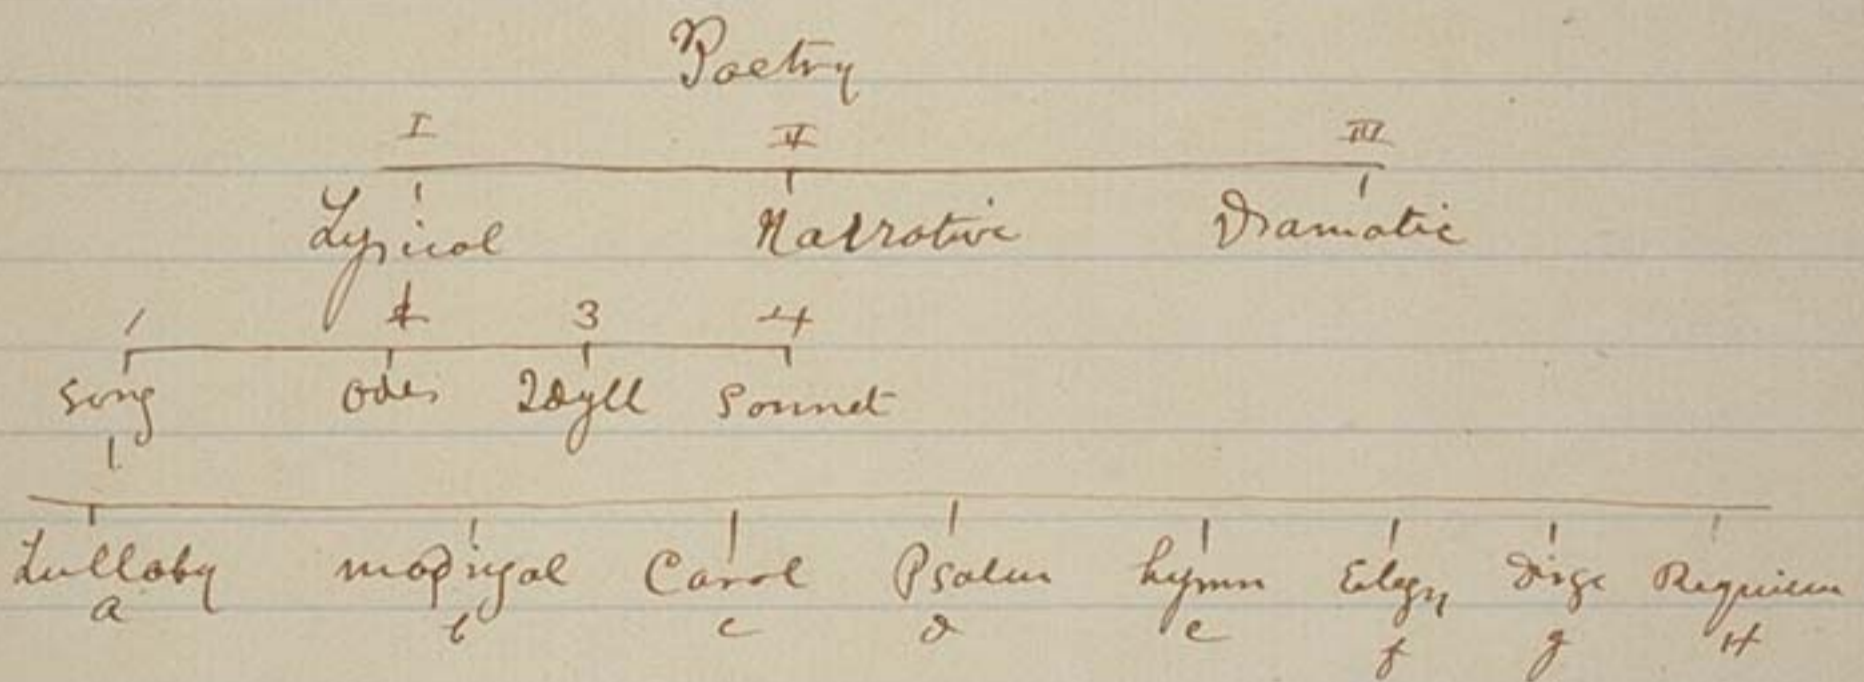 Poetry
I II III
Lyrical Narrative Dramatic
1 2 3 4
Song Odes Idyll Sonnet
Lullaby madrigal Carol Psalm hymn Elegy Dirge Requiem
a b c d e f g H